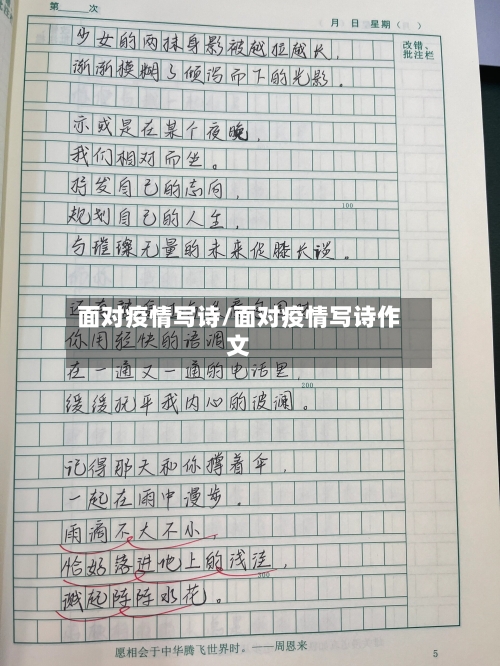 第 次
月 日 星期（ ）
改错、
批注栏
少女的两抹身影被越拉越长，
渐渐模糊了倾泻而下的光影。
亦或是在某个夜晚，
我们相对而坐。
抒发自己的志向，
规划自己的人生，
100
与璀璨无量的未来促膝长谈。
面对疫情写诗/面对疫情写诗作
文
你用轻快的语调
在一通又一通的电话里，
200
缓缓抚平我内心的波澜。
记得那天和你撑着伞，
一起在雨中漫步。
雨滴不大不小，
恰好落进地上的浅洼，
300
溅起阵阵水花。
愿相会于中华腾飞世界时。——周恩来
5